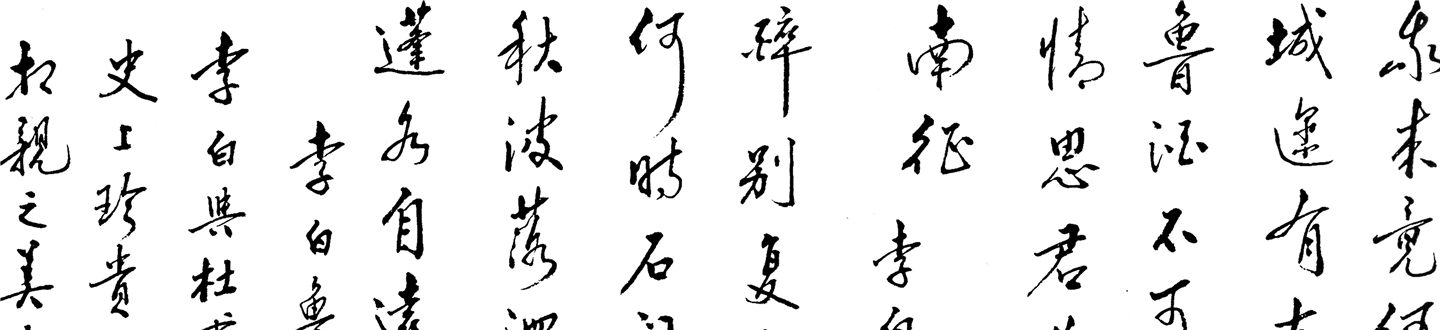 我来竟何
城邊有古
魯酒不可
情思君
南征 李白
碎别復
何時石門
秋波落泗
蓬各自遠
李白魯
李白與杜甫
史上珍貴
相親之美